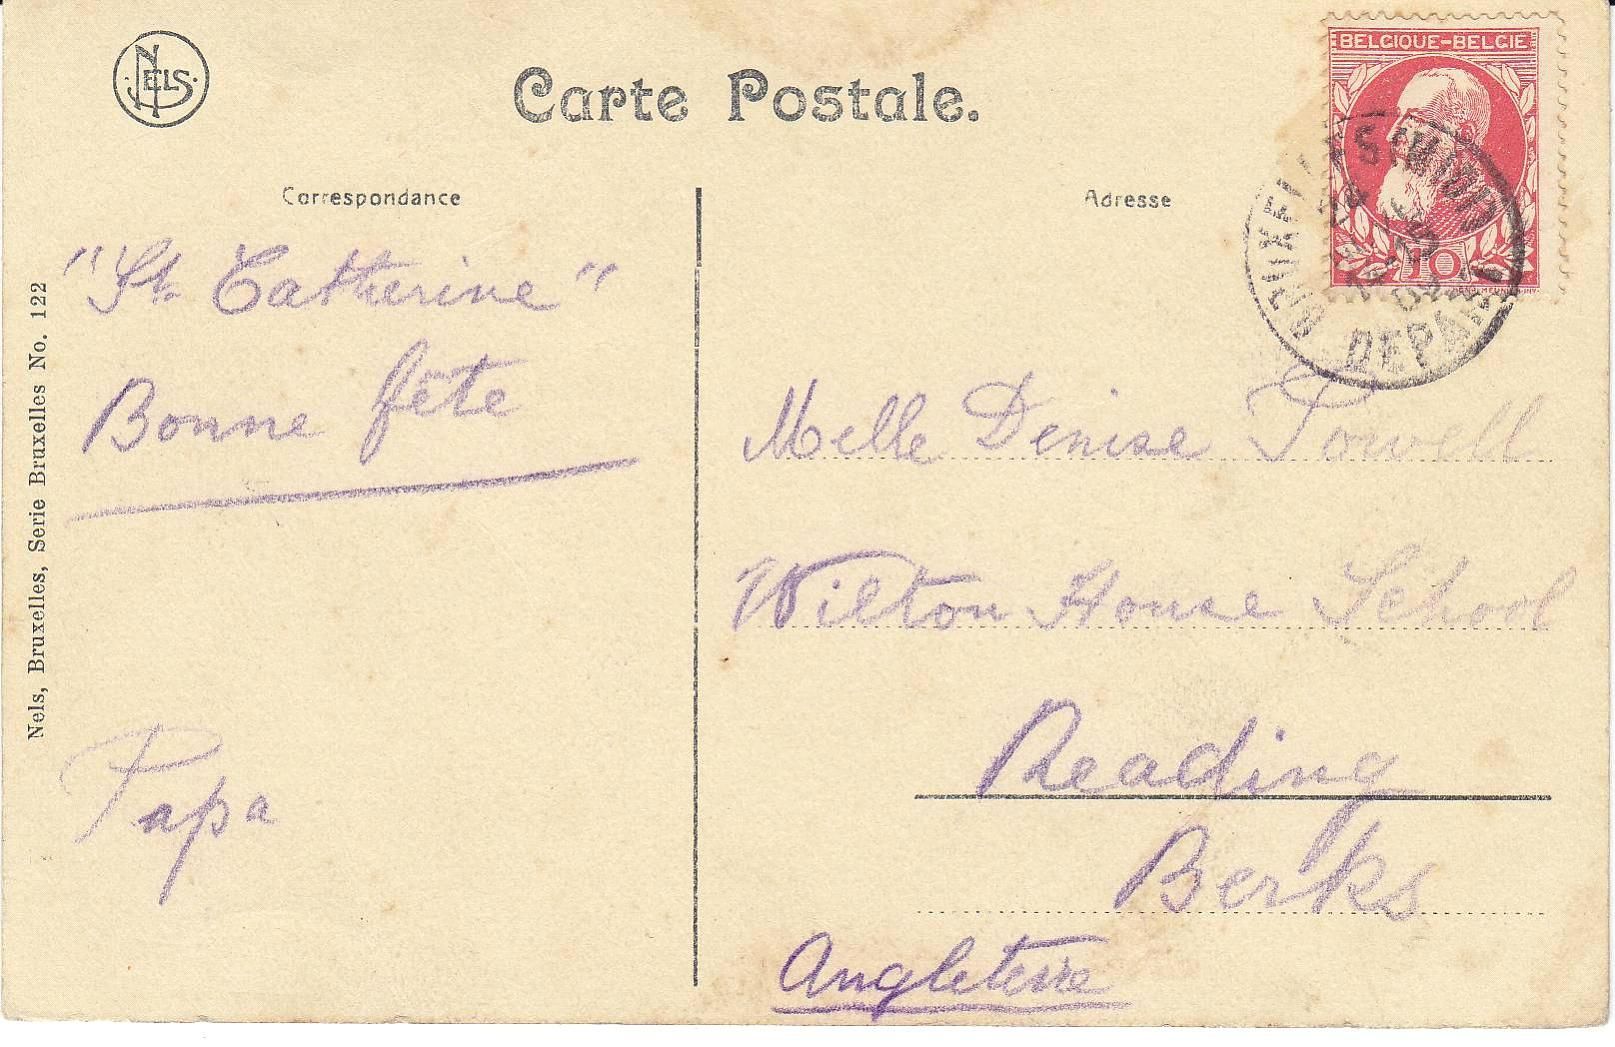 NELS
Carte Postale.
BELGIQUE-BELGIË
10
BRUXELLES (MIDI)
DEPART
Correspondance
Adresse
"St. Catherine"
Bonne fête
Papa
Melle Denise Powell
Wilton House School
Reading
Berks
Angleterre
Nels, Bruxelles, Serie Bruxelles No. 122